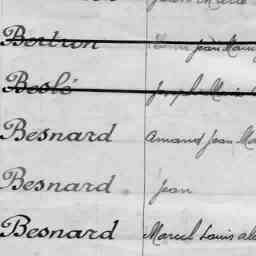 Bertron Jean Marie
Beslé Joseph Marie
Besnard Amand Jean Ma
Besnard Jean
Besnard Marcel Louis Al